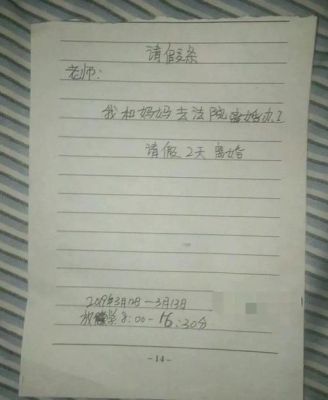 请假条
老师:
我和妈妈去法院离婚办工
请假2天离婚
2019年3月12日—3月13日
8:00-16:30分
-14-